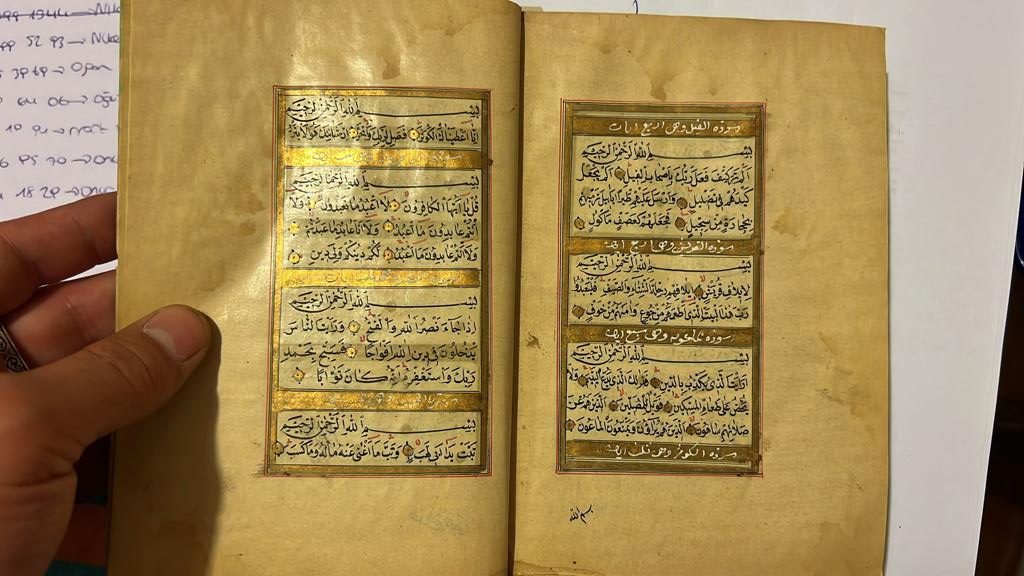 سورة الفيل وهى اربع ايات
بسم الله الرحمن الرحيم
الم تر كيف فعل ربك باصحاب الفيل الم يجعل
كيدهم فى تضليل وارسل عليهم طيرا ابابيل ترميهم
بحجارة من سجيل فجعلهم كعصف مأكول
سورة القريش وهى اربع ايات
بسم الله الرحمن الرحيم
لايلاف قريش ايلافهم رحلة الشتاء والصيف فليعبدوا
رب هذا البيت الذى اطعمهم من جوع وامنهم من خوف
سورة ماعون وهى سبع ايات
بسم الله الرحمن الرحيم
ارايت الذى يكذب بالدين فذلك الذى يدع اليتيم ولا
يحض على طعام المسكين فويل للمصلين الذين هم عن
صلاتهم ساهون الذين هم يراؤن ويمنعون الماعون
سورة الكوثر وهى ثلث ايات
بسم الله
بسم الله الرحمن الرحيم
انا اعطيناك الكوثر فصل لربك وانحر ان شانئك هو الابتر
بسم الله الرحمن الرحيم
قل يا ايها الكافرون لا اعبد ما تعبدون ولا
انتم عابدون ما اعبد ولا انا عابد ما عبدتم
ولا انتم عابدون ما اعبد لكم دينكم ولى دين
بسم الله الرحمن الرحيم
اذا جاء نصر الله والفتح ورايت الناس
يدخلون فى دين الله افواجا فسبح بحمد
ربك واستغفره انه كان توابا
بسم الله الرحمن الرحيم
تبت يدا ابى لهب وتب ما اغنى عنه ماله وما كسب